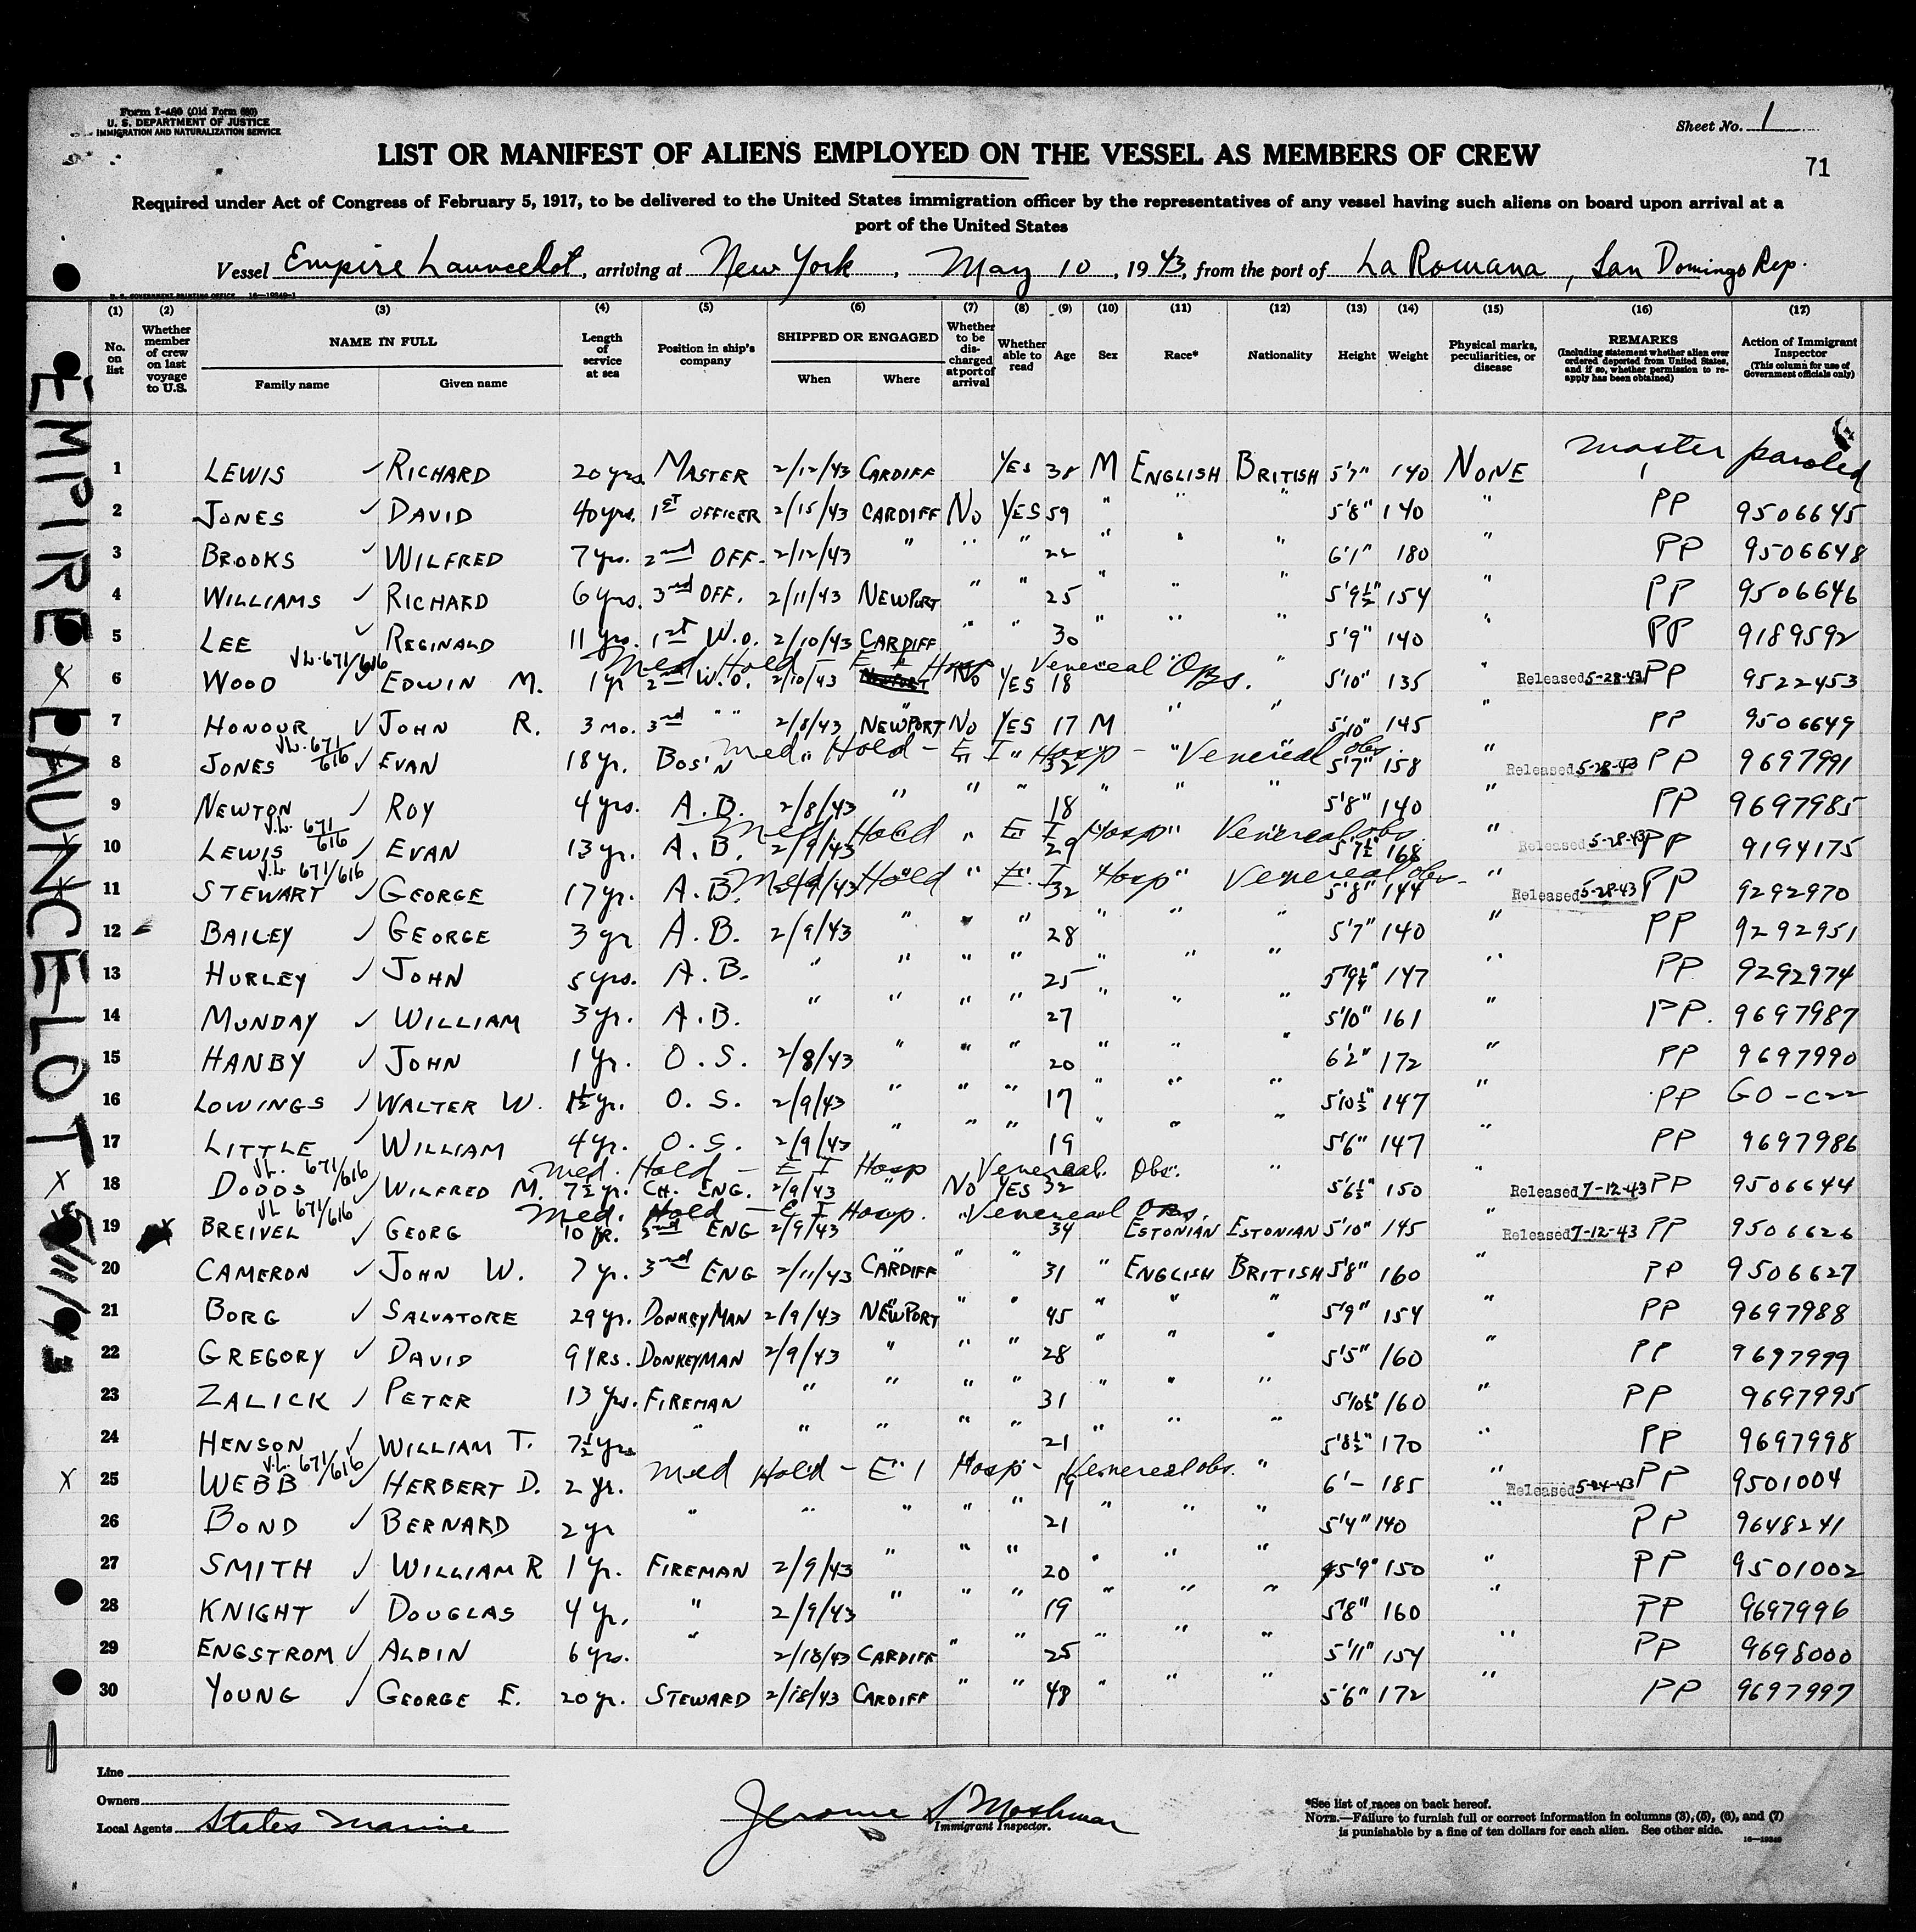 Form I-480 (Old Form 680)
U. S. DEPARTMENT OF JUSTICE
IMMIGRATION AND NATURALIZATION SERVICE
Sheet No. 1
LIST OR MANIFEST OF ALIENS EMPLOYED ON THE VESSEL AS MEMBERS OF CREW
71
Required under Act of Congress of February 5, 1917, to be delivered to the United States immigration officer by the representatives of any vessel having such aliens on board upon arrival at a
port of the United States
Vessel Empire Launcelot, arriving at New York, May 10, 1943, from the port of La Romana, San Domingo Rep.
U. S. GOVERNMENT PRINTING OFFICE 16—19249-1
(1) (2) (3) (4) (5) (6) (7) (8) (9) (10) (11) (12) (13) (14) (15) (16) (17)
No. on list
Whether member of crew on last voyage to U.S.
NAME IN FULL
Family name Given name
Length of service at sea
Position in ship's company
SHIPPED OR ENGAGED
When Where
Whether to be discharged at port of arrival
Whether able to read
Age
Sex
Race*
Nationality
Height
Weight
Physical marks, peculiarities, or disease
REMARKS
(Including statement whether alien ever ordered deported from United States, and if so, whether permission to reapply has been obtained)
Action of Immigrant Inspector
(This column for use of Government officials only)
EMPIRE LAUNCELOT
1 LEWIS ✓ RICHARD 20 yrs. MASTER 2/12/43 CARDIFF YES 38 M ENGLISH BRITISH 5'7" 140 NONE master paroled
2 JONES ✓ DAVID 40 yrs. 1ST OFFICER 2/15/43 CARDIFF NO YES 59 " " " 5'8" 140 " PP 9506645
3 BROOKS ✓ WILFRED 7 yrs. 2nd OFF. 2/12/43 " " " 22 " " " 6'1" 180 " PP 9506648
4 WILLIAMS ✓ RICHARD 6 yrs. 3rd OFF. 2/11/43 NEWPORT " " 25 " " " 5'9½" 154 " PP 9506646
5 LEE ✓ REGINALD 11 yrs. 1st W.O. 2/10/43 CARDIFF " " 30 " " " 5'9" 140 " PP 9189592
V.L. 671/616 Med. Hold - E I Hosp Venereal Obs.
X 6 WOOD EDWIN M. 1 yr 2nd W.O. 2/10/43 NO YES 18 " " " 5'10" 135 " Released 5-28-43 PP 9522453
7 HONOUR ✓ JOHN R. 3 mo. 3rd " " 2/8/43 NEWPORT NO YES 17 M " " 5'10" 145 PP 9506649
V.L. 671/616 Med. Hold - E I Hosp - Venereal obs.
8 JONES ✓ EVAN 18 yr. BOS'N 32 5'7" 158 " Released 5-28-43 PP 9697991
9 NEWTON ✓ ROY 4 yrs. A.B. 2/8/43 " " " 18 " " " 5'8" 140 " PP 9697985
V.L. 671/616 Med. Hold E I Hosp Venereal obs
10 LEWIS ✓ EVAN 13 yr. A.B. 2/9/43 29 5'7½" 168 " Released 5-28-43 PP 9194175
V.L. 671/616 Med. Hold E. I Hosp Venereal obs-
11 STEWART ✓ GEORGE 17 yr. A.B. 2/9/43 32 5'8" 144 " Released 5-28-43 PP 9292970
12 BAILEY ✓ GEORGE 3 yr A.B. 2/9/43 " " " 28 " " " 5'7" 140 " PP 9292951
13 HURLEY ✓ JOHN 5 yrs. A.B. " " " " 25 " " " 5'9½" 147 " PP 9292974
14 MUNDAY ✓ WILLIAM 3 yr. A.B. " " " " 27 " " " 5'10" 161 " PP. 9697987
15 HANBY ✓ JOHN 1 yr. O.S. 2/8/43 " " " 20 " " " 6'2" 172 " PP 9697990
16 LOWINGS ✓ WALTER W. 1½ yr. O.S. 2/9/43 " " " 17 " " " 5'10½" 147 " PP GO-C22
17 LITTLE ✓ WILLIAM 4 yr. O.S. 2/9/43 " " " 19 " " " 5'6" 147 " PP 9697986
V.L. 671/616 Med. Hold - E I Hosp Venereal Obs.
X 18 DODDS ✓ WILFRED M. 7½ yr. CH. ENG. 2/9/43 " NO YES 32 " 5'6½" 150 " Released 7-12-43 PP 9506644
V.L. 671/616 Med. Hold - E I Hosp. Venereal Obs.
19 BREIVEL ✓ GEORG 10 yr. 2nd ENG 2/9/43 34 ESTONIAN ESTONIAN 5'10" 145 " Released 7-12-43 PP 9506626
20 CAMERON ✓ JOHN W. 7 yr. 3rd ENG 2/11/43 CARDIFF " " 31 " ENGLISH BRITISH 5'8" 160 " PP 9506627
21 BORG ✓ SALVATORE 29 yr. DONKEYMAN 2/9/43 NEWPORT " " 45 " " " 5'9" 154 " PP 9697988
22 GREGORY ✓ DAVID 9 YRS. DONKEYMAN 2/9/43 " " " 28 " " " 5'5" 160 " PP 9697999
23 ZALICK ✓ PETER 13 yrs. FIREMAN " " " " 31 " " " 5'10½" 160 " PP 9697995
24 HENSON ✓ WILLIAM T. 7½ yrs " " " " " 21 " " " 5'8½" 170 " PP 9697998
V.L. 671/616 Med Hold - E I Hosp - Venereal obs.
X 25 WEBB ✓ HERBERT D. 2 yr. 19 " 6'- 185 " Released 5-24-43 PP 9501004
26 BOND ✓ BERNARD 2 yr " " " " " 21 " " " 5'4" 140 " PP 9648241
27 SMITH ✓ WILLIAM R 1 yr. FIREMAN 2/9/43 " " " 20 " " " 5'9" 150 " PP 9501002
28 KNIGHT ✓ DOUGLAS 4 yr. " 2/9/43 " " " 19 " " " 5'8" 160 " PP 9697996
29 ENGSTROM ✓ ALBIN 6 yrs. " 2/18/43 CARDIFF " " 25 " " " 5'11" 154 " PP 9698000
30 YOUNG ✓ GEORGE E. 20 yr. STEWARD 2/18/43 CARDIFF " " 48 " " " 5'6" 172 " PP 9697997
Line
Owners
Local Agents States Marine
Jerome S Moshman
Immigrant Inspector.
*See list of races on back hereof.
NOTE.—Failure to furnish full or correct information in columns (3), (5), (6), and (7)
is punishable by a fine of ten dollars for each alien. See other side.
16—19249